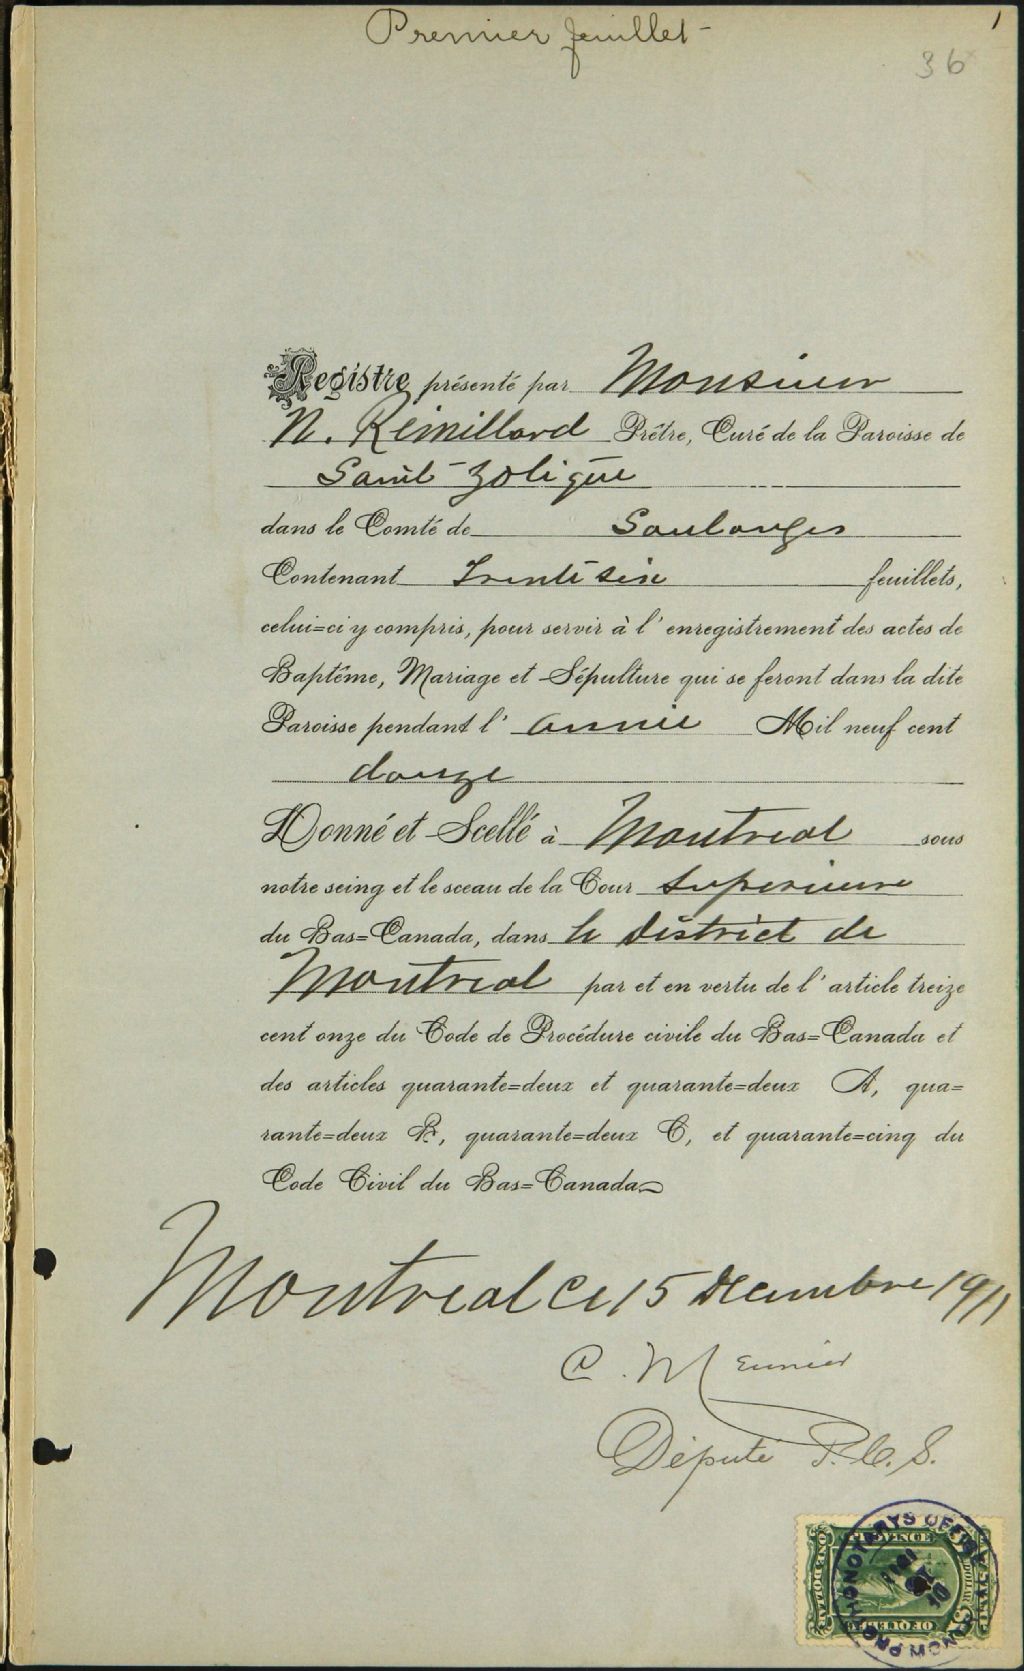 Premier feuillet -
1
36
Registre présenté par Monsieur
N. Rémillard Prêtre, Curé de la Paroisse de
Saint Zotique
dans le Comté de Soulanges
Contenant Trente six feuillets,
celui=ci y compris, pour servir à l'enregistrement des actes de
Baptême, Mariage et Sépulture qui se feront dans la dite
Paroisse pendant l'année Mil neuf cent
douze
Donné et Scellé à Montreal sous
notre seing et le sceau de la Cour Superieure
du Bas=Canada, dans le District de
Montreal par et en vertu de l'article treize
cent onze du Code de Procédure civile du Bas=Canada et
des articles quarante=deux et quarante=deux A, qua=
rante=deux B, quarante=deux C, et quarante=cinq du
Code Civil du Bas=Canada
Montreal ce 15 Decembre 1911
C. Meunier
Député P. C. S.
PROVINCE